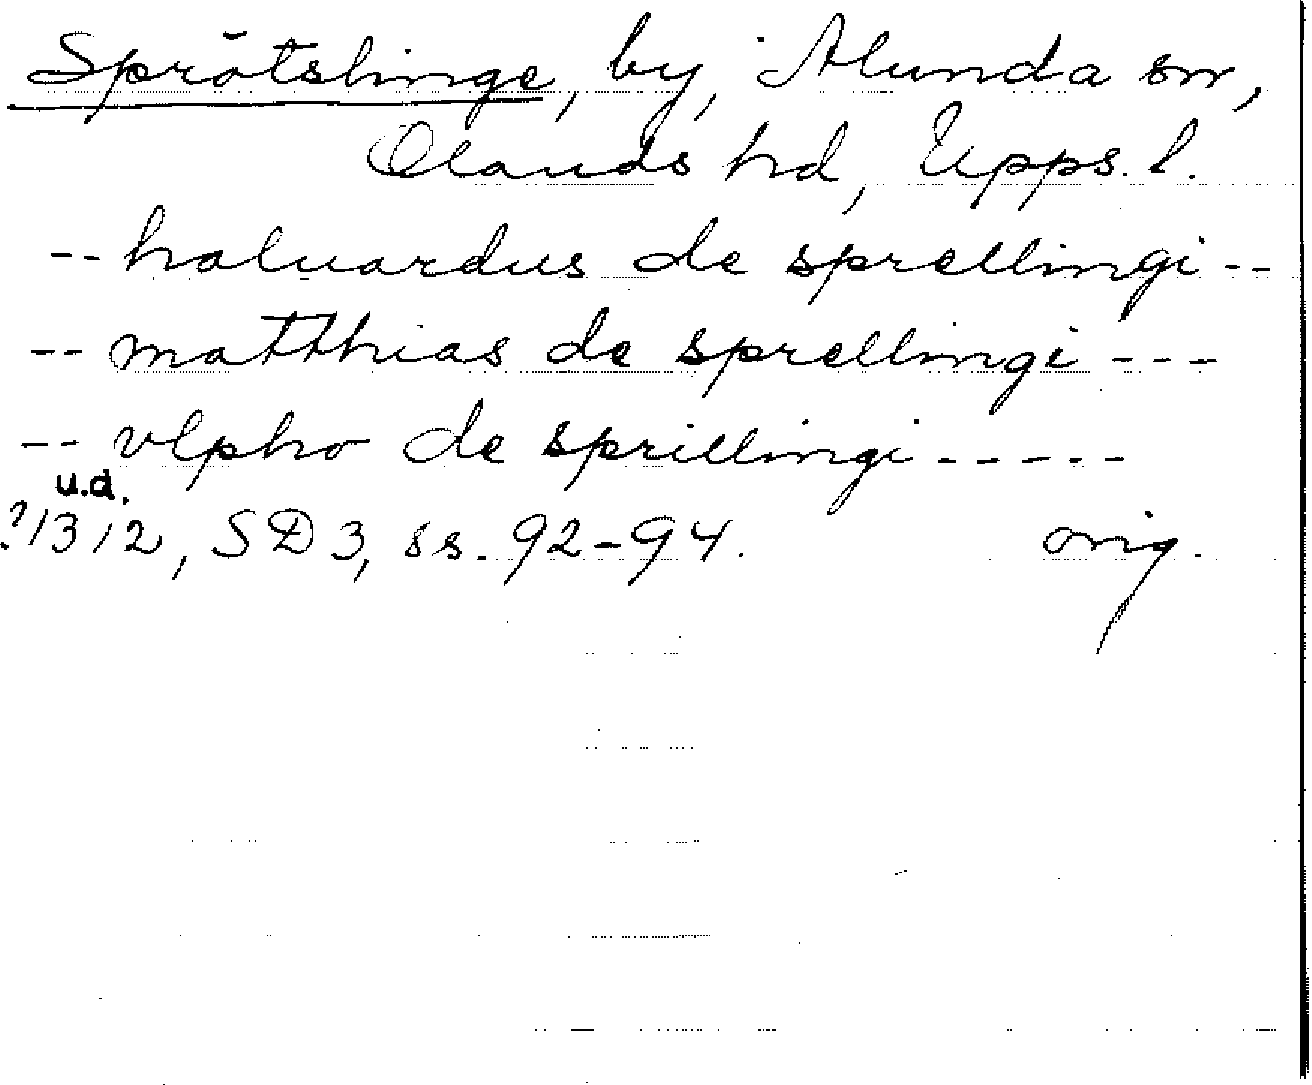 Sprötslinge, by, Alunda sn,
Olands hd, Upps. l.
-- haluardus de sprellingi --
-- matthias de sprellingi ---
-- vlpho de sprillingi -----
u.d.
?1312, SD 3, ss. 92-94. orig.